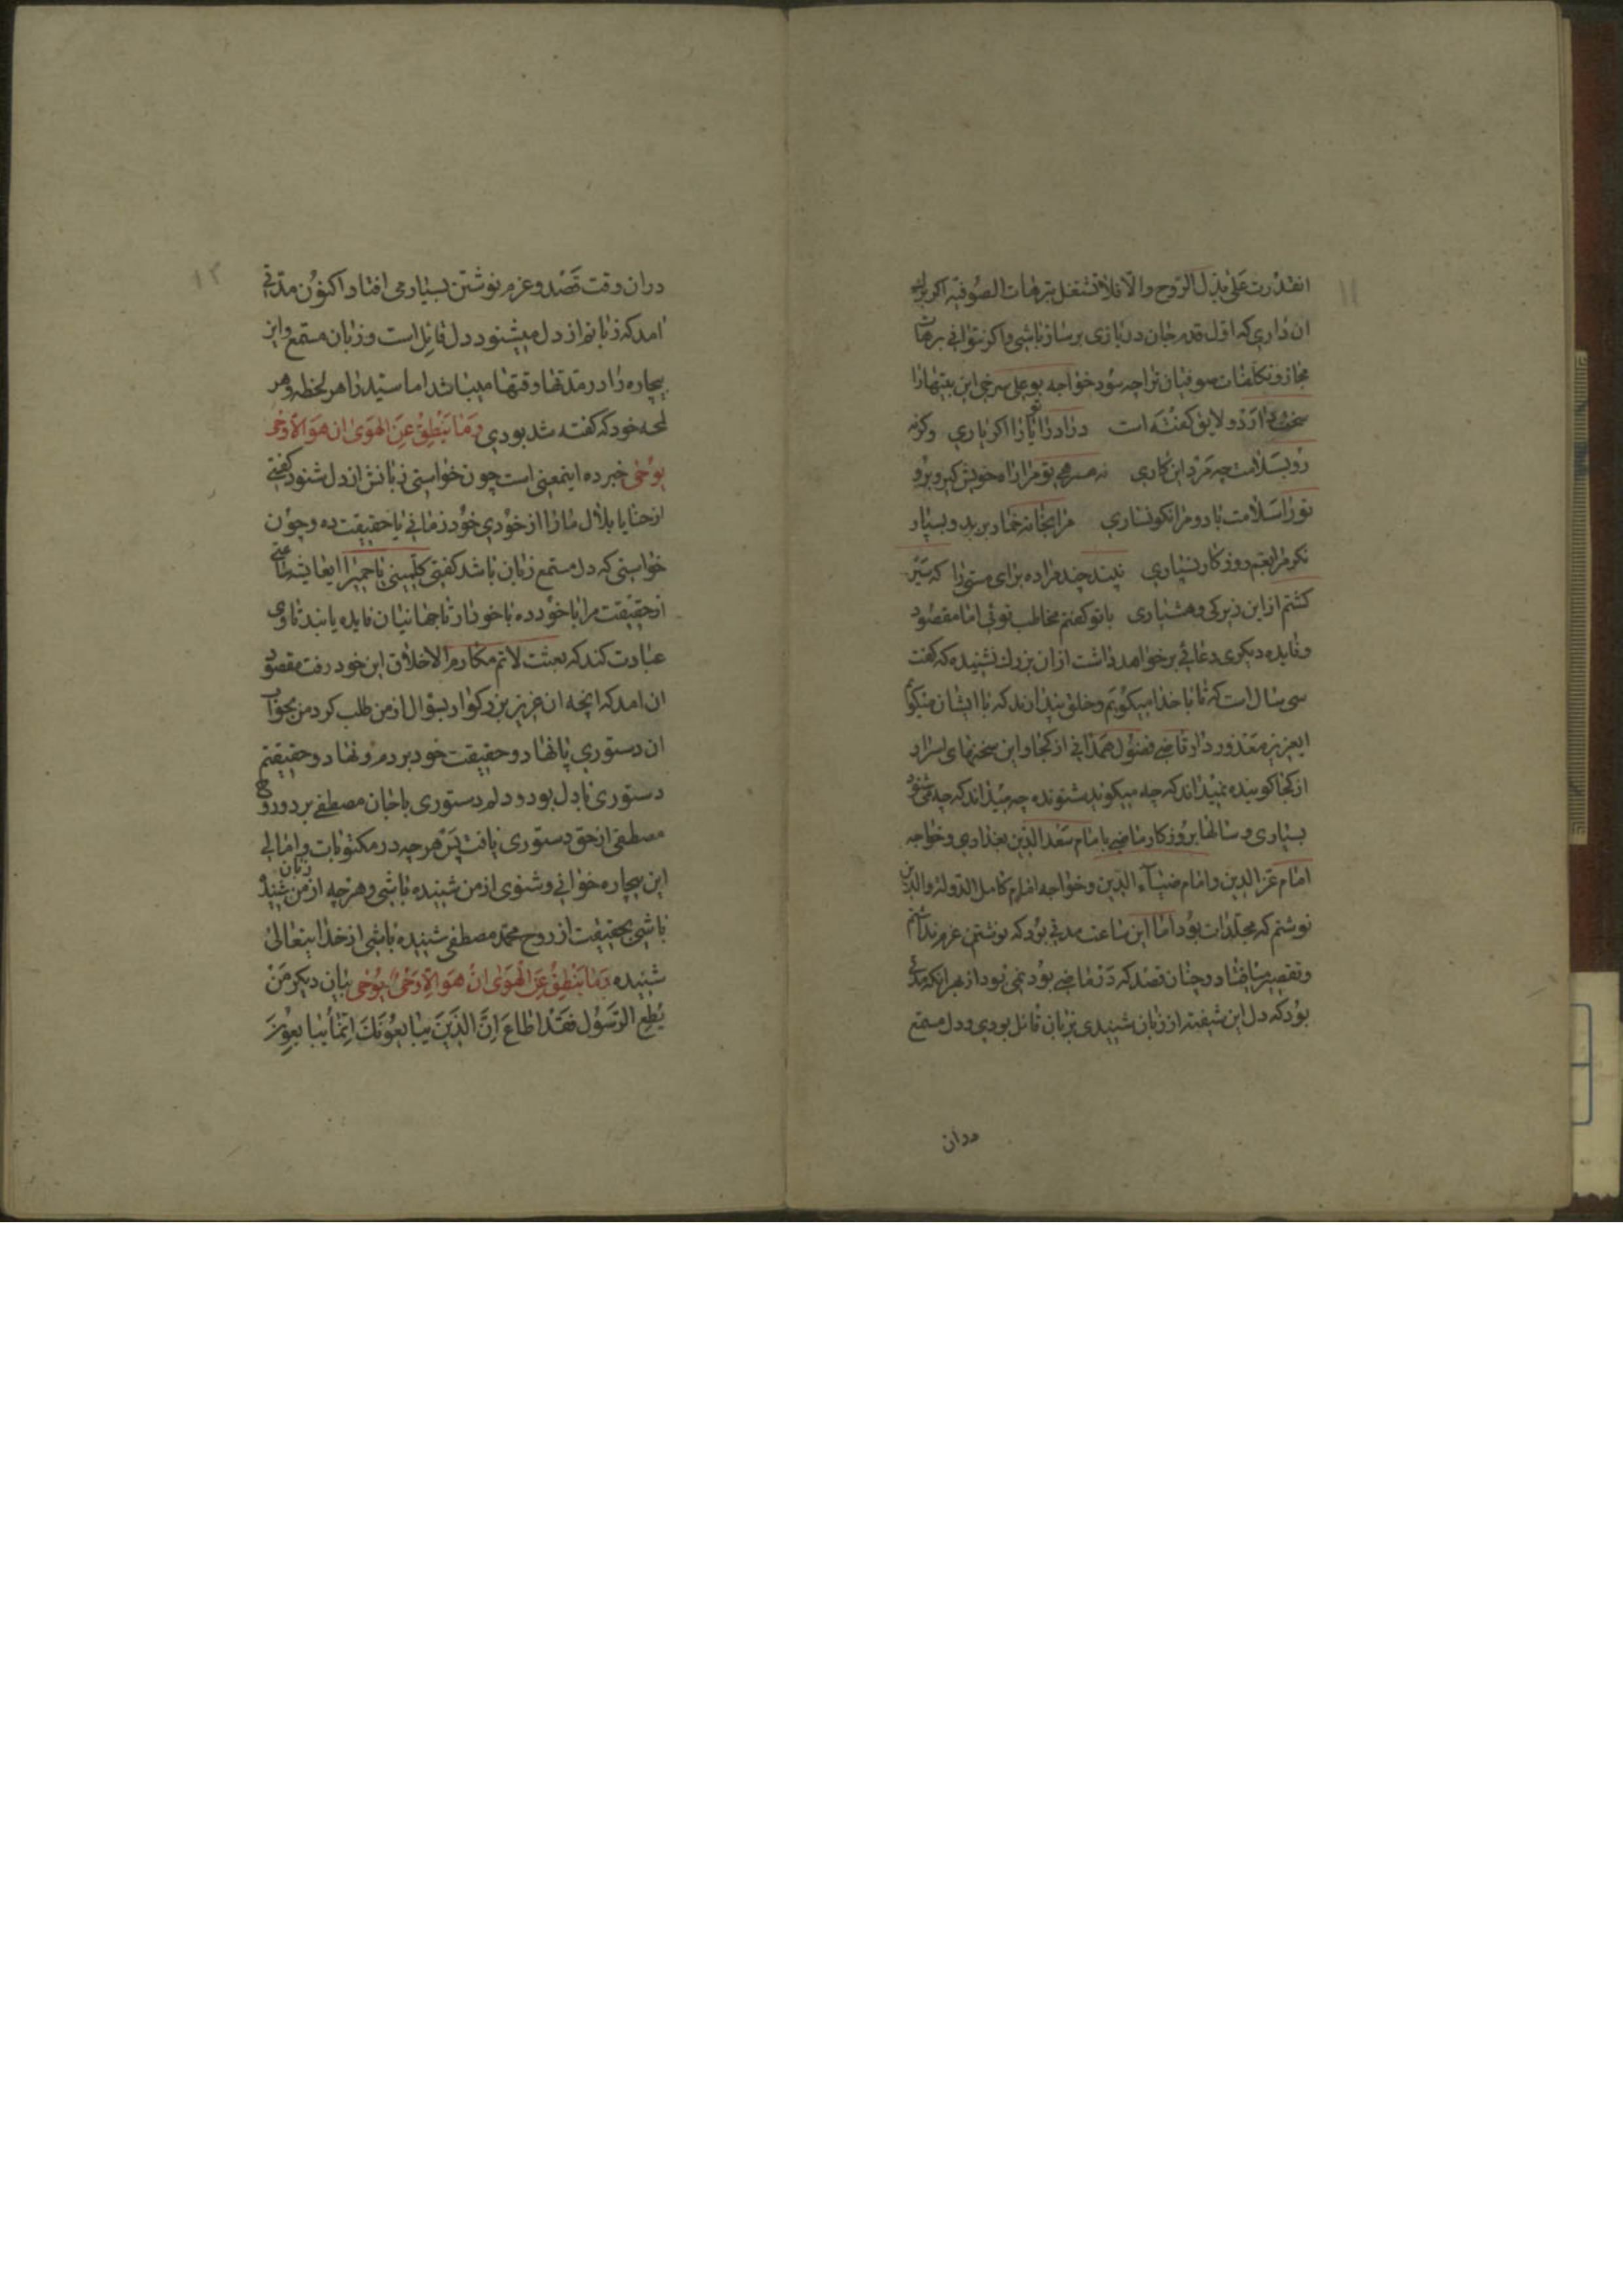 ۱۱
ان قدرت علی بذل الروح والا فلا تشتغل بترهات الصوفیة اکر برک
ان داری که اول قدم جان در بازی برساز باشی و اکر نتوانی برهات
مجاز و تکلفات صوفیان ترا چه سود خواجه بو علی سرخی این بیتها را
سخت در خورد و لایق کفته است درادر ایارا اکر یاری وکرنه
رو بسلامت چه مرد این کاری نه همرهی تو مرا راه خویش کیر و برو
تورا سلامت بادو مرا نکونساری مرا بخانه خمار برید و بسپارد
نکر مرا بغم روزکار نسپاری نپیند چند مرا ده برای مستی را که سیر
کشتم از این زیرکی و هشیاری باتو کفتم مخاطب توئی اما مقصود
و فایده دیکری دعائی بر خواهد داشت از ان بزرك نشنیده که کفت
سی سال است که تا با خدا میکویم و خلق پندارند که با ایشان میکویم
ایعزیز معذور دار قاضی فضول همدانی از کجا و این سخنهای اسرار
از کجا کوینده نمیداند که چه میکوید شنونده چه میداند که چه می شنود
بسیاری رسالها بروزکار ماضی بامام سعد الدین بغدادی و خواجه
امام عز الدین و امام ضیاء الدین و خواجه امام کامل الدولة والدین
نوشتم که مجلدات بود اما این ساعت مدتی بود که نوشتن عزم نداشتم
و تقصیر میافتاد و چنان قصد که در ماضی بود نمی بود از بهر انکه مدتی
بود که دل این شیفته از زبان شنیدی زبان قائل بودی و دل مستمع
دران
۱۲
دران وقت قصد و عزم نوشتن بسیار می افتاد اکنون مدتی
امد که زبانم از دل میشنود دل قائل است و زبان مستمع و این
بیچاره را در مدتها وقتها میباشد اما سید را هر لحظه و هر
لمحه خود که کفته شد بودی وَمَا يَنْطِقُ عَنِ الهَوَى ان هُوَ الّا وَحْی
يُوحى خبر ده اینمعنی است چون خواستی زبانش از دل شنود کفتی
ارحنا یا بلال ما را از خودی خود زمانی با حقیقت ده و چون
خواستی که دل مستمع زبان باشد کفتی کلمینی یا حمیرا ایعایشه ساعتی
از حقیقت مرا با خود ده با خود ار تا جهانیان فایده یابند تا وی
عبادت کند که بعثت لاتمم مکارم الاخلاق این خود رفت مقصود
ان امد که انچه ان عزیز بزرکوار بسؤال از من طلب کرد من بجواب
ان دستوری با نهاد و حقیقت خود بردم و نهاد و حقیقتم
دستوری با دل بود و دلم دستوری با جان مصطفی برد و روح
مصطفی از حق دستوری یافت پس هر چه در مکتوبات و امالی
این بیچاره خوانی و شنوی از من شنیده باشی و هر چه از زبان من شنیده
باشی بحقیقت از روح محمد مصطفی شنیده باشی از خدا یتعالی
شنیده وَمَا يَنْطِقُ عَنِ الْهَوَى انْ هُوَ الّا وَحْیٌ يُوحى بیان دیکر مَنْ
يُطِعِ الرَّسُولَ فَقَدْ اطَاعَ اِنَّ الَّذِينَ يُبَايِعُونَكَ اِنَّمَا يُبَايِعُونَ